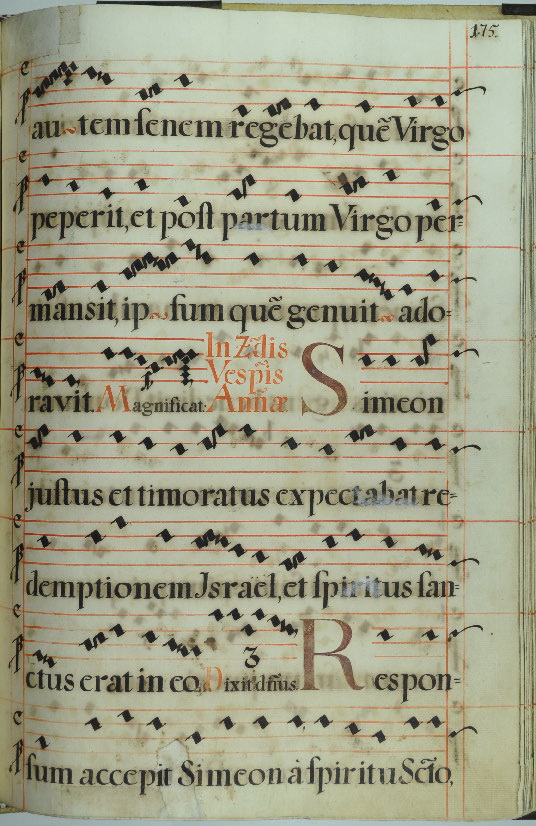 175.
autem senem regebat, quẽ Virgo
peperit, et post partum Virgo per=
mansit, ipsum quẽ genuit ado=
In 2.dis
Vesp̃is
ravit. Magnificat. Annæ Simeon
justus et timoratus expectabat re=
demptionem Israël, et spiritus san=
3
ctus erat in eo. Dixit dñus. Respon=
sum accepit Simeon à spiritu Scto,